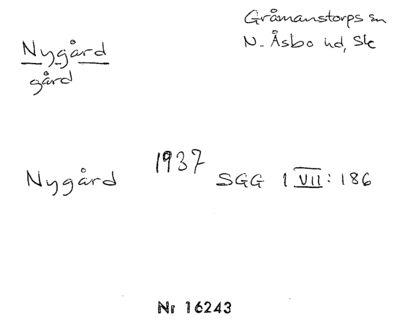 Gråmanstorps sn
N. Åsbo hd, Sk
Nygård
gård
Nygård 1937 SGG 1 VII: 186
Nr 16243